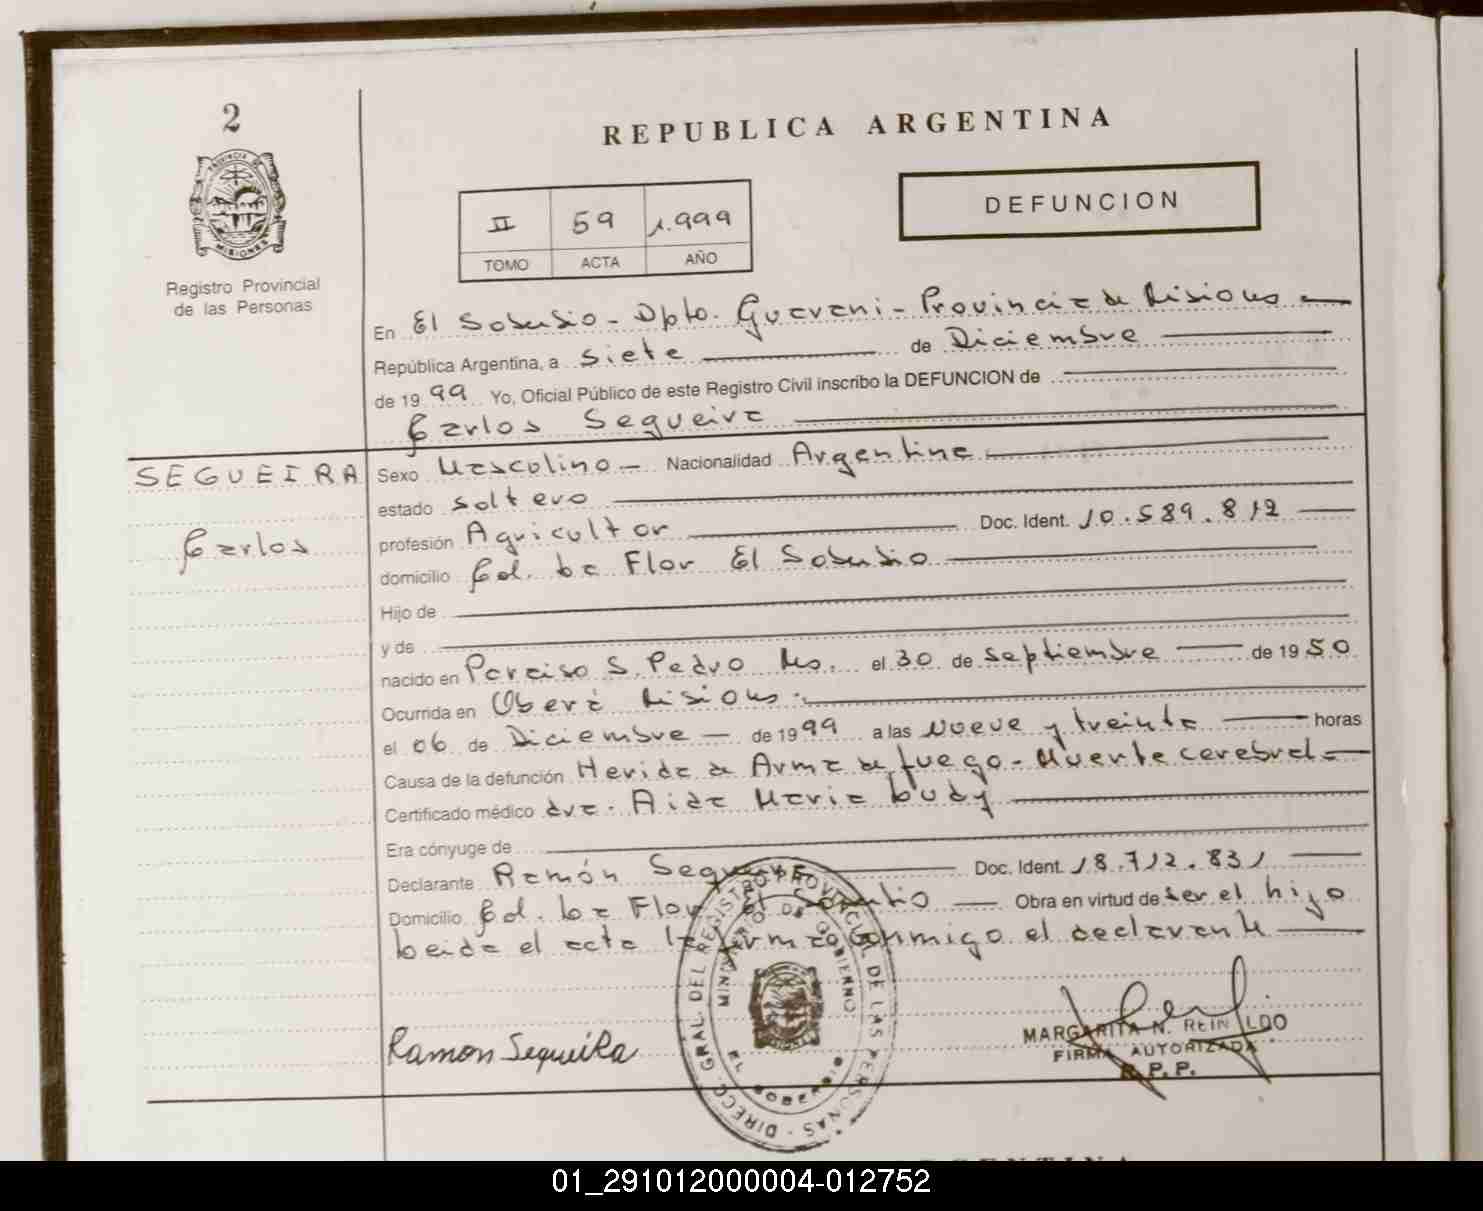 2
REPUBLICA ARGENTINA
DEFUNCION
II 59 1.999
TOMO ACTA AÑO
Registro Provincial
de las Personas
En El Soberbio - Dpto. Guarani - Provincia de Misiones
República Argentina, a siete de Diciembre
de 1999 Yo, Oficial Público de este Registro Civil inscribo la DEFUNCION de
Carlos Segueira
SEGUEIRA
Carlos
Sexo Masculino - Nacionalidad Argentina
estado soltero
profesión Agricultor Doc. Ident. 10.589.812
domicilio Col. La Flor El Soberbio
Hijo de
y de
nacido en Paraiso S. Pedro Ms. el 30 de septiembre de 1950
Ocurrida en Oberá Misiones.
el 06 de Diciembre de 1999 a las Nueve y treinta horas
Causa de la defunción Herida de Arma de fuego - Muerte cerebral
Certificado médico dra. Aida Maria
Era cónyuge de
Declarante Ramón Segueira Doc. Ident. 18.712.831
Domicilio Col. La Flor El Soberbio Obra en virtud de ser el hijo
Leida el acta la firma conmigo el declarante
Ramon SequeiRa
DIRECC. GRAL. DEL REGISTRO PROVINCIAL DE LAS PERSONAS
MINISTERIO DE GOBIERNO
EL SOBERBIO
MARGARITA N. REINALDO
FIRMA AUTORIZADA
R.P.P.
01_291012000004-012752